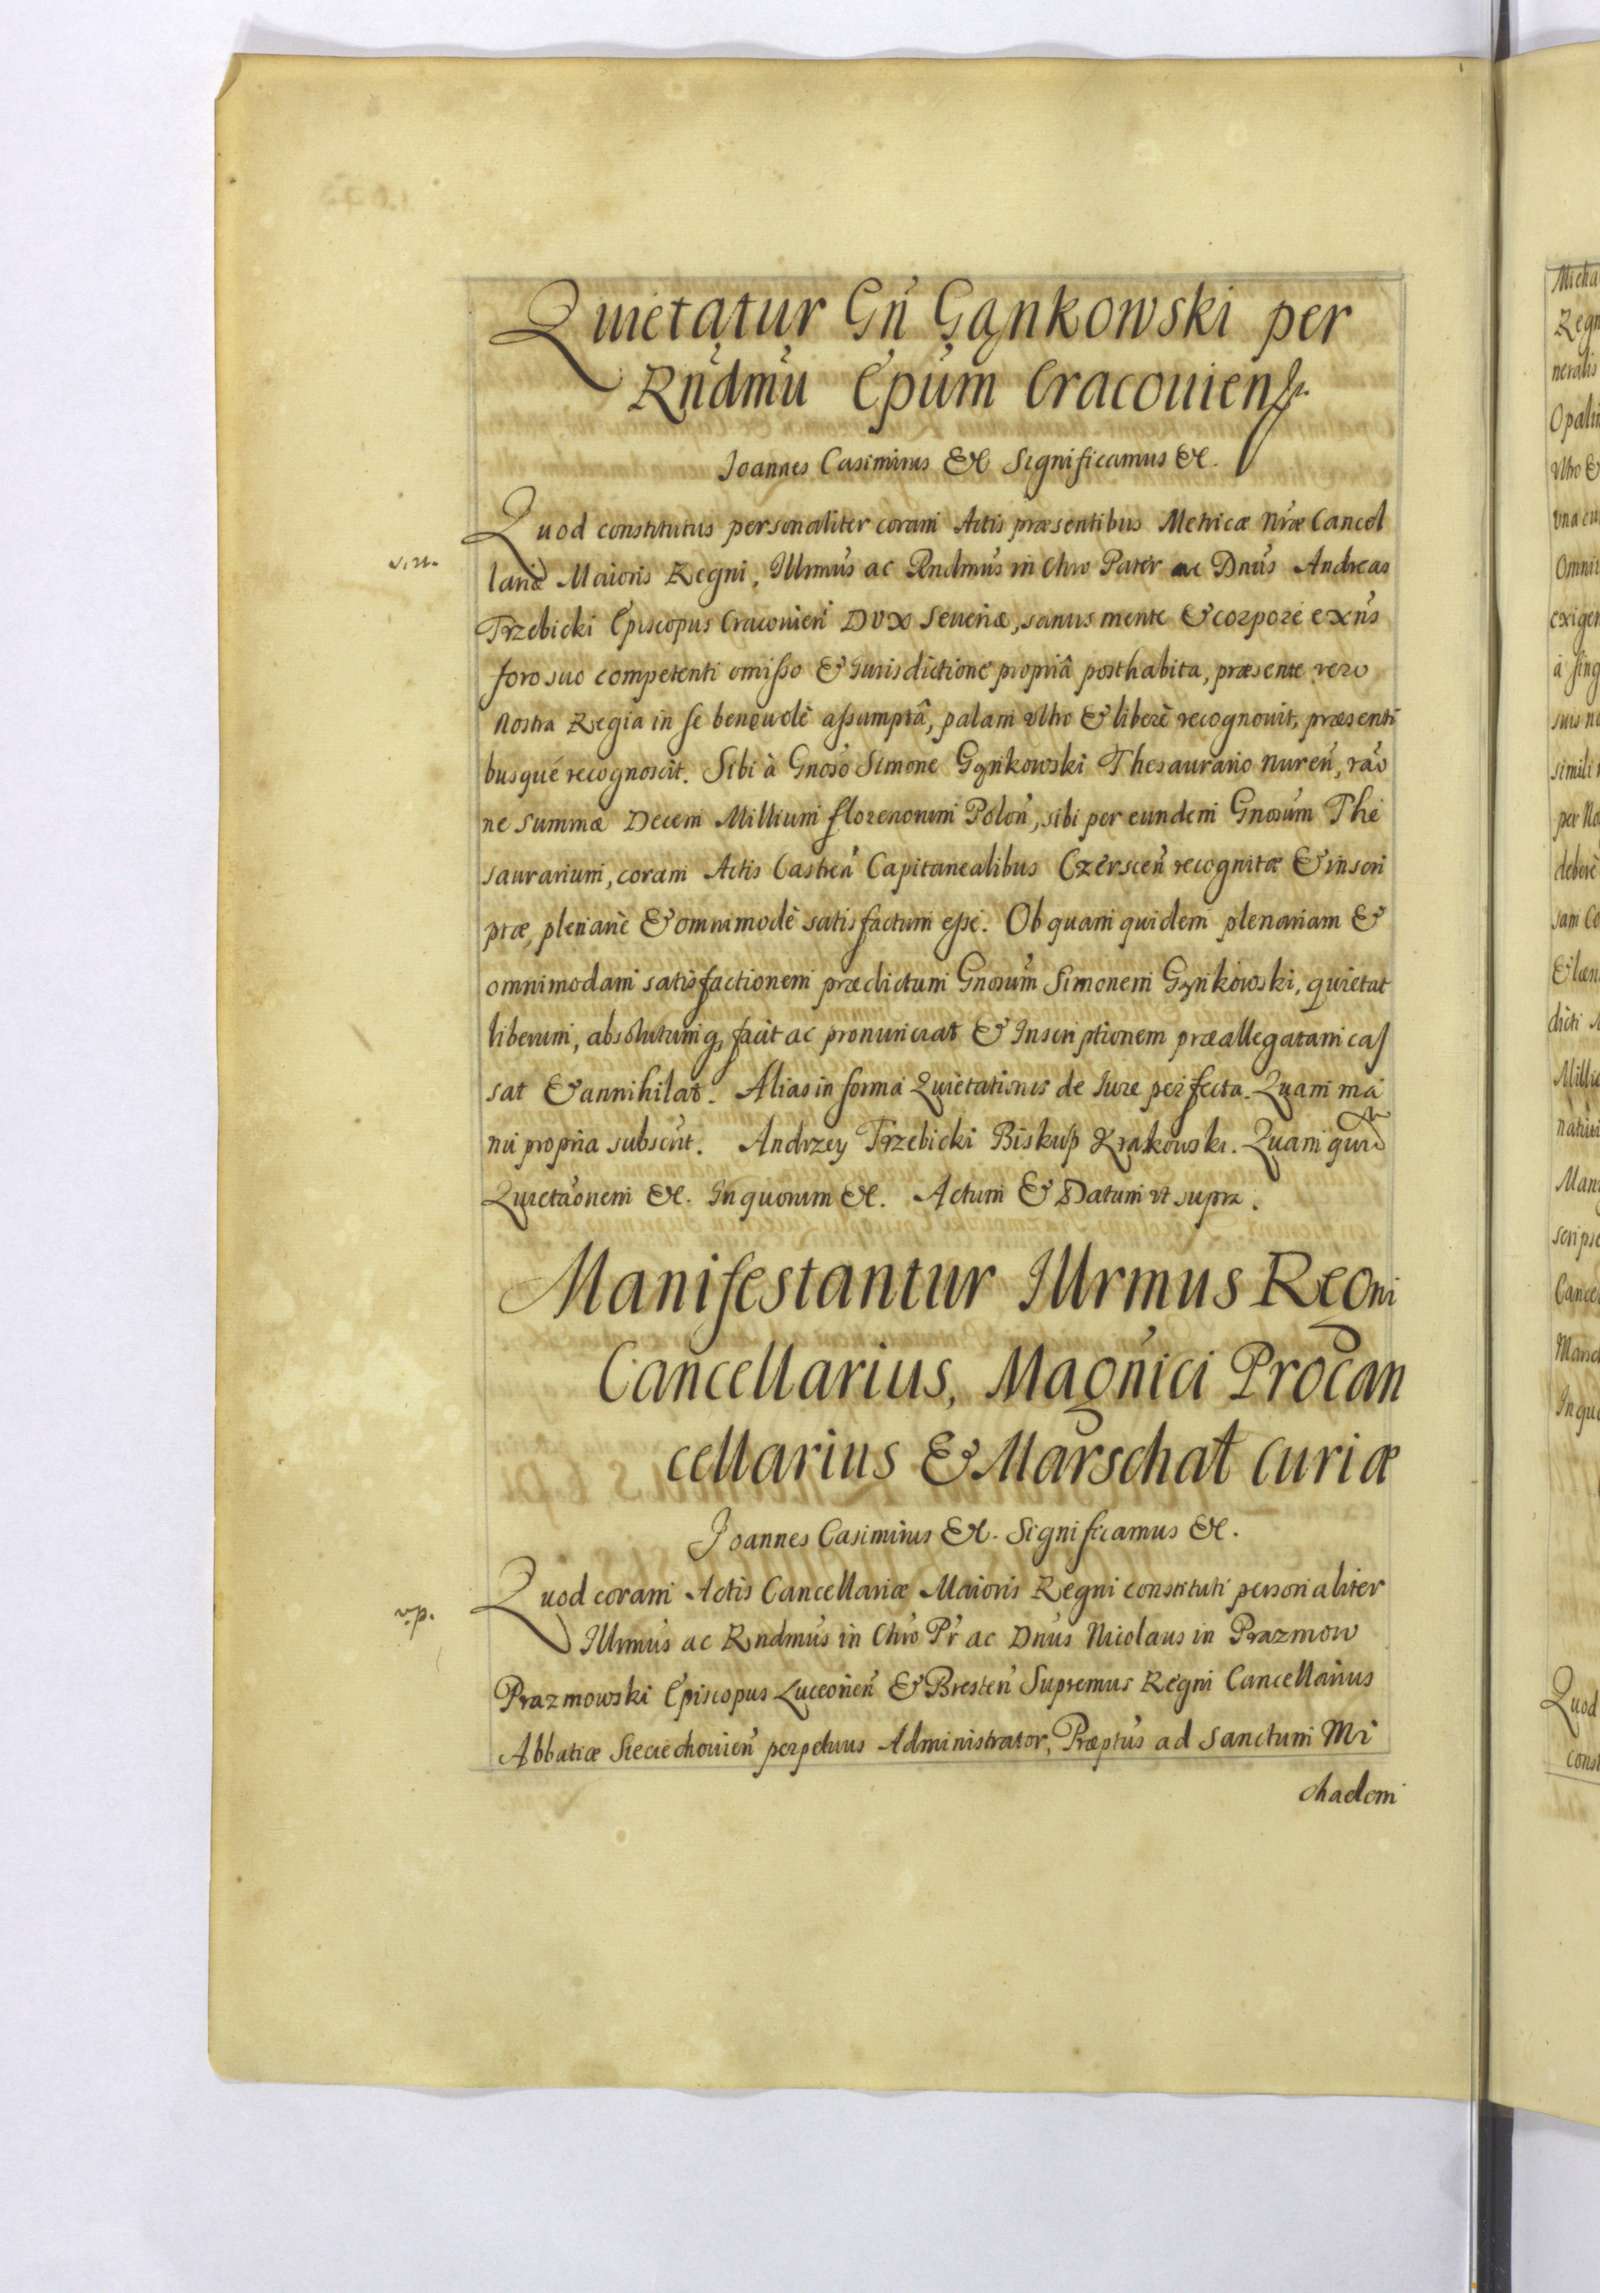 Quietatur Gń Gąnkowski per
Rńdmu Epum Cracouiens.
Joannes Casimirus &c Significamus &c.
Quod constitutus personaliter coram Actis præsentibus Metricæ Nræ Cancel
lariæ Maioris Regni, Illrmus ac Rndmus in Chro Pater ac Dnus Andreas
Trzebicki Episcopus Cracouień Dux Seueriæ, sanus mente & corpore exńs
foro suo competenti omisso & Jurisdictione propriâ posthabita, præsente vero
Nostra Regia in se beneuolè assumptâ, palam vltro & liberè recognouit, præsenti
busque recognoscit. Sibi à Gnoso Simone Gąnkowski Thesaurario Nureń, rão
ne summæ Decem Millium florenorum Poloń, sibi per eundem Gnosum The
saurarium, coram Actis Castreń Capitanealibus Czersceń recognitæ & inscri
ptæ, plenariè & omnimodè satisfactum esse. Ob quam quidem plenariam &
omnimodam satisfactionem prædictum Gnosum Simonem Gąnkowski, quietat
liberum, absolutumq, facit ac pronunciat & Inscriptionem præallegatam cas
sat & annihilat. Alias in forma Quietationis de Iure perfecta. Quam ma
nu propria subscrit. Andrzey Trzebicki Biskup Krakowski. Quam quid
Quietaonem &c. In quorum &c. Actum & Datum vt supra.
Manifestantur Illrmus Regni
Cancellarius, Magnici Procan
cellarius & Marschat Curiæ
Joannes Casimirus &c. Significamus &c.
Quod coram Actis Cancellariæ Maioris Regni constituti personaliter
Illrmus ac Rndmus in Chro Pr ac Dnus Nicolaus in Prazmow
Prazmowski Episcopus Luceorień & Bresteń Supremus Regni Cancellarius
Abbatiæ Sieciechouień perpetuus Administrator, Præptus ad Sanctum Mi
chaelem